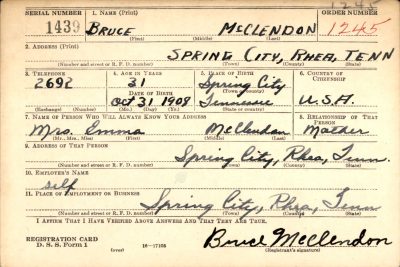 1245
SERIAL NUMBER 1. NAME (Print) ORDER NUMBER
1439 BRUCE MCCLENDON 1245
(First) (Middle) (Last)
2. ADDRESS (Print)
SPRING CITY, RHEA, TENN
(Number and street or R. F. D. number) (Town) (County) (State)
3. TELEPHONE 4. AGE IN YEARS 5. PLACE OF BIRTH 6. COUNTRY OF CITIZENSHIP
2692 31 Spring City
DATE OF BIRTH (Town or county)
Oct 31 1908 Tennessee U.S.A.
(Exchange) (Number) (Mo.) (Day) (Yr.) (State or country)
7. NAME OF PERSON WHO WILL ALWAYS KNOW YOUR ADDRESS 8. RELATIONSHIP OF THAT PERSON
Mrs. Emma McClendon Mother
(Mr., Mrs., Miss) (First) (Middle) (Last)
9. ADDRESS OF THAT PERSON
Spring City, Rhea, Tenn.
(Number and street or R. F. D. number) (Town) (County) (State)
10. EMPLOYER'S NAME
self
11. PLACE OF EMPLOYMENT OR BUSINESS
Spring City, Rhea, Tenn
(Number and street or R. F. D. number) (Town) (County) (State)
I AFFIRM THAT I HAVE VERIFIED ABOVE ANSWERS AND THAT THEY ARE TRUE.
REGISTRATION CARD
D. S. S. FORM 1 (over) 16—17105 Bruce McClendon
(Registrant's signature)